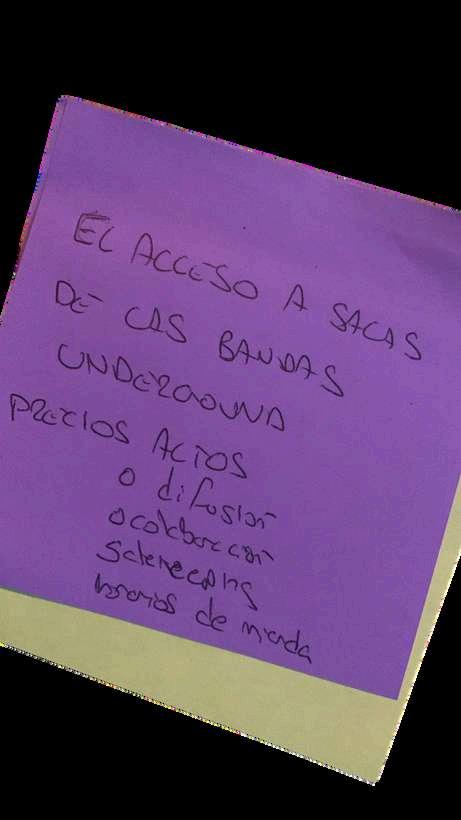 EL ACCESO A SALAS
DE LAS BANDAS
UNDERGOUND
PRECIOS ALTOS
o difusión
o colaboración
horarios de mierda